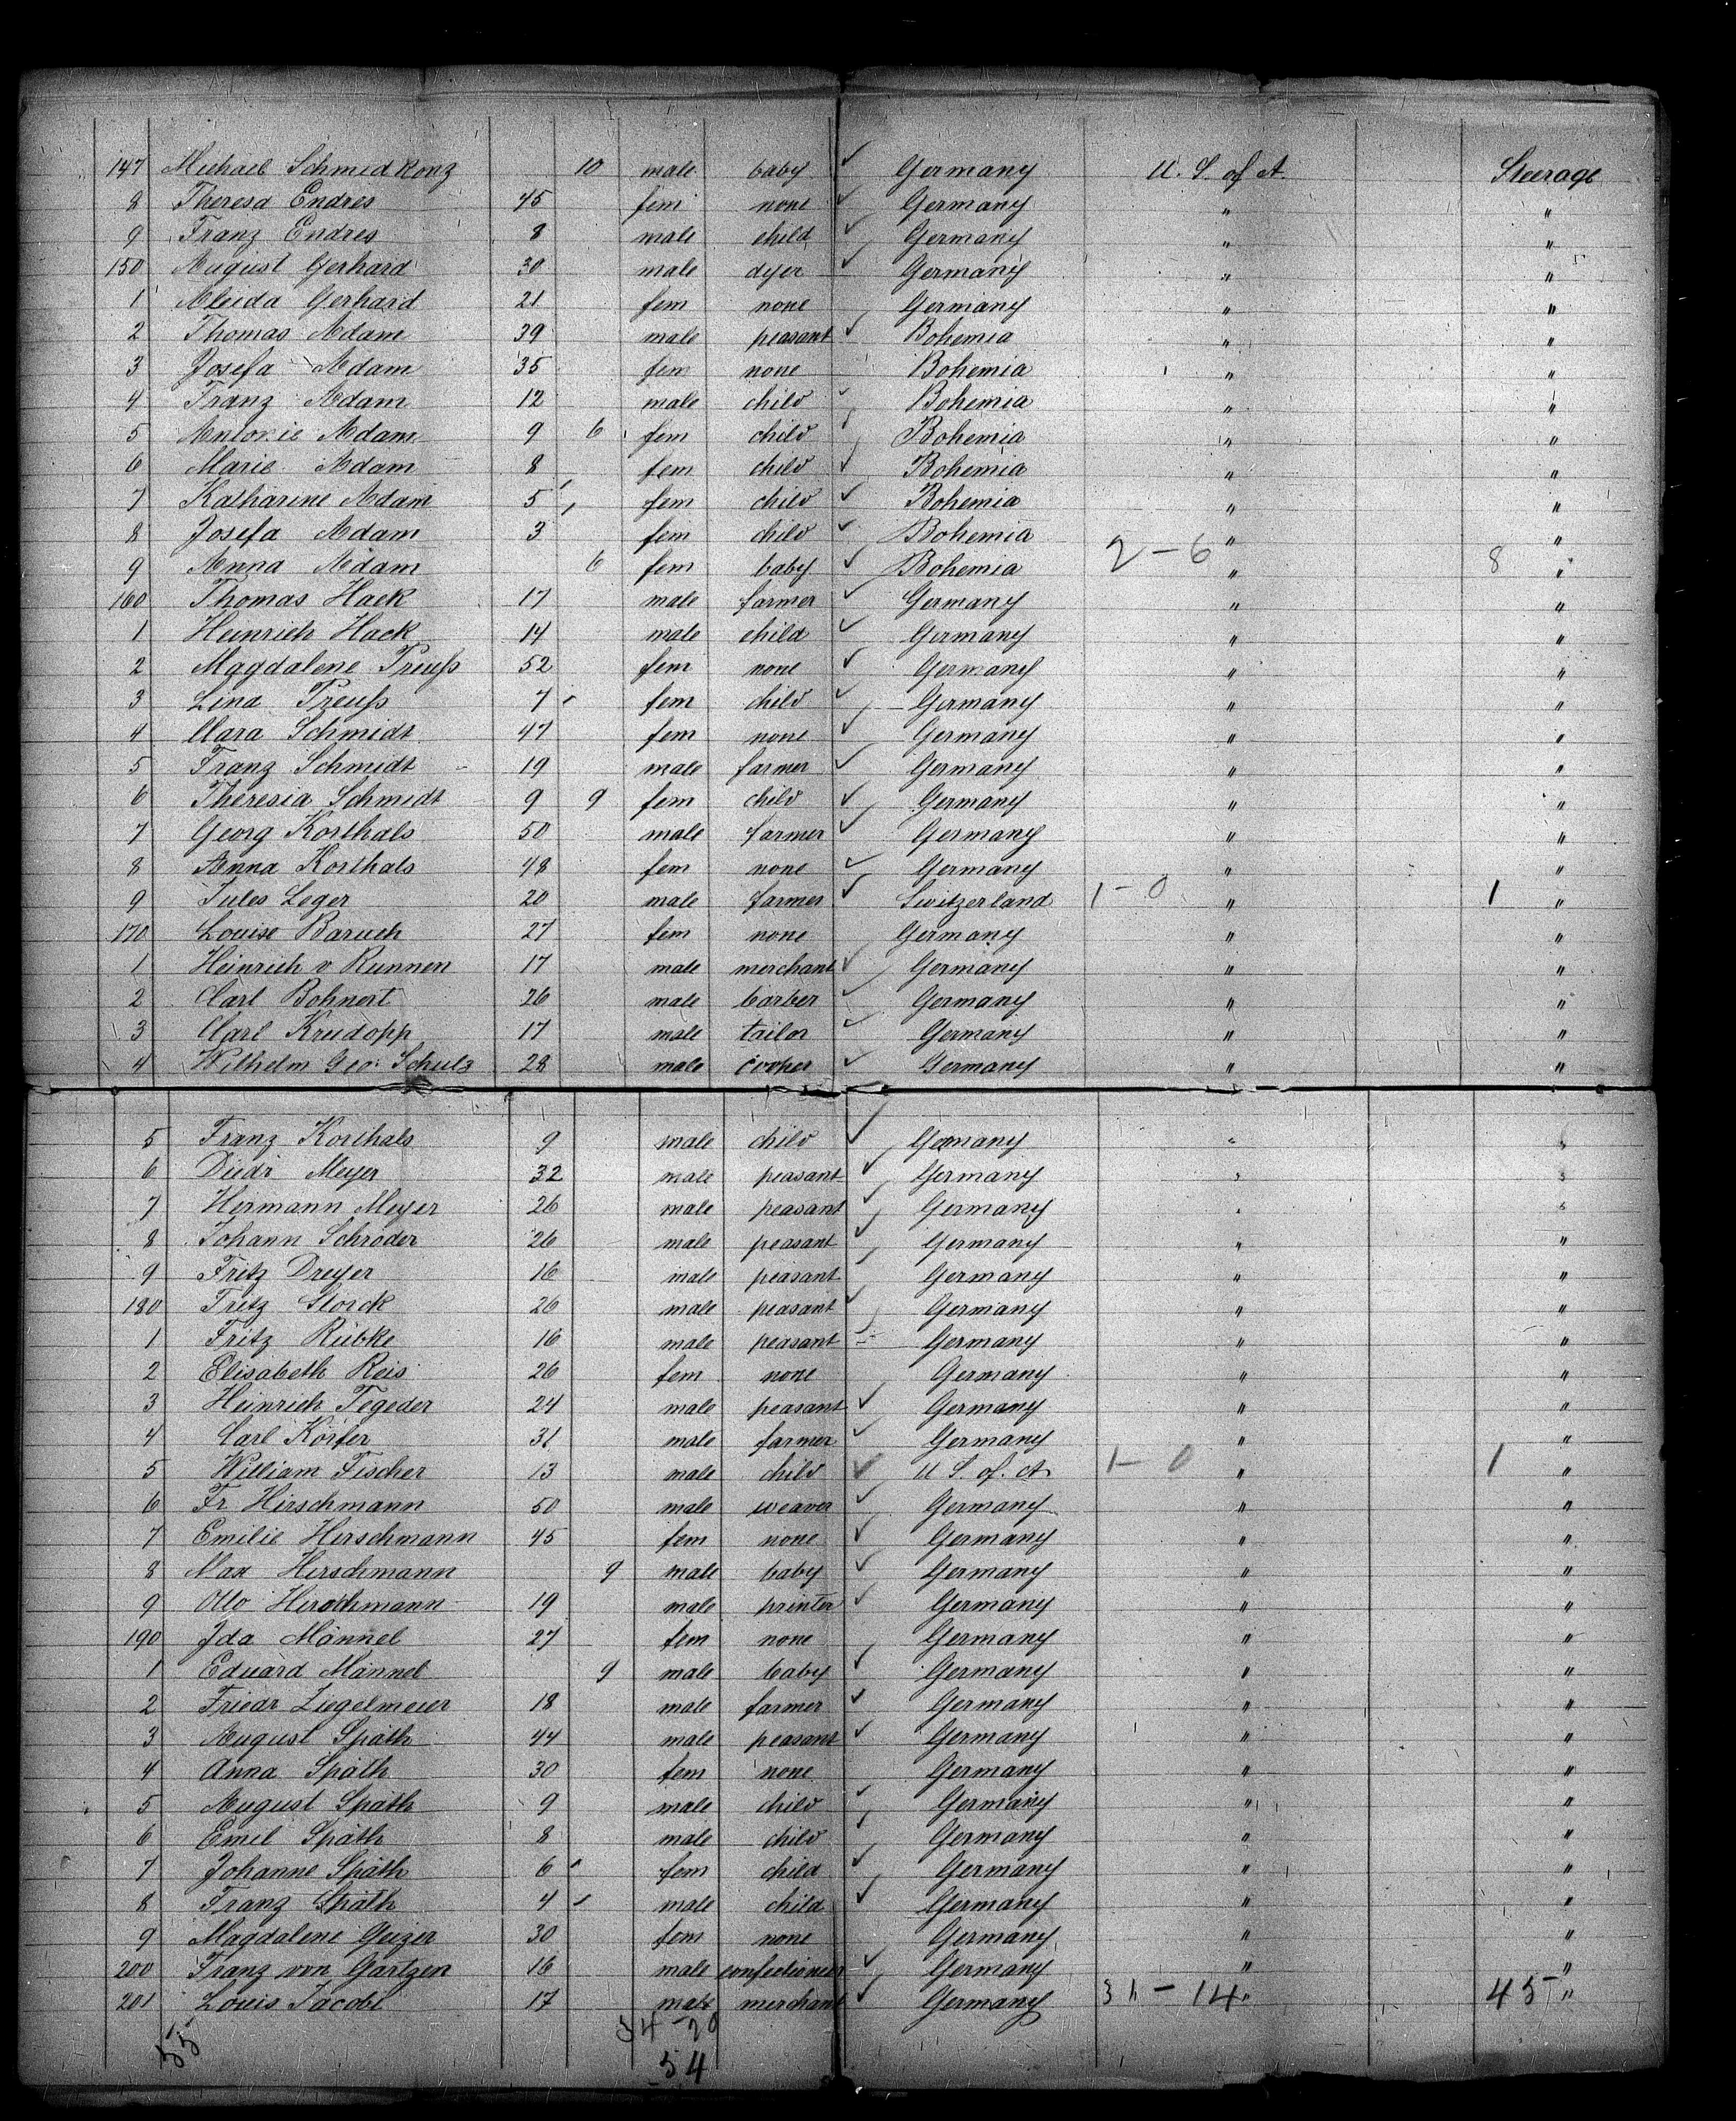 147 Michael Schmidkonz 10 male baby ✓ Germany U. S. of A. Steerage
8 Theresa Endres 45 fem none ✓ Germany " "
9 Franz Endres 8 male child ✓ Germany " "
150 August Gerhard 30 male dyer ✓ Germany " "
1 Aleida Gerhard 21 fem none Germany " "
2 Thomas Adam 39 male peasant ✓ Bohemia " "
3 Josefa Adam 35 fem none Bohemia " "
4 Franz Adam 12 male child ✓ Bohemia " "
5 Antonie Adam 9 6 fem child Bohemia " "
6 Marie Adam 8 fem child ✓ Bohemia " "
7 Katharine Adam 5 fem child ✓ Bohemia " "
8 Josefa Adam 3 fem child ✓ Bohemia " "
9 Anna Adam 6 fem baby ✓ Bohemia 2 - 6 " 8 "
160 Thomas Hack 17 male farmer ✓ Germany " "
1 Heinrich Hack 14 male child ✓ Germany " "
2 Magdalene Preuß 52 fem none ✓ Germany " "
3 Lina Preuß 7 fem child ✓ Germany " "
4 Clara Schmidt 47 fem none ✓ Germany " "
5 Franz Schmidt 19 male farmer ✓ Germany " "
6 Theresia Schmidt 9 9 fem child ✓ Germany " "
7 Georg Korthals 50 male farmer ✓ Germany " "
8 Anna Korthals 48 fem none ✓ Germany " "
9 Jules Leger 20 male farmer ✓ Switzerland 1 - 0 " 1 "
170 Louise Baruch 27 fem none Germany " "
1 Heinrich v Runnen 17 male merchant ✓ Germany " "
2 Carl Bohnert 26 male barber ✓ Germany " "
3 Carl Krudopp 17 male tailor ✓ Germany " "
4 Wilhelm Geo. Schulz 28 male cooper ✓ Germany " "
5 Franz Korthals 9 male child ✓ Germany " "
6 Diedr Meyer 32 male peasant ✓ Germany " "
7 Hermann Meyer 26 male peasant ✓ Germany " "
8 Johann Schröder 26 male peasant ✓ Germany " "
9 Fritz Dreyer 16 male peasant Germany " "
180 Fritz Storck 26 male peasant ✓ Germany " "
1 Fritz Rübke 16 male peasant Germany " "
2 Elisabeth Reis 26 fem none Germany " "
3 Heinrich Tegeder 24 male peasant ✓ Germany " "
4 Carl Körfer 31 male farmer ✓ Germany " "
5 William Fischer 13 male child ✓ U S. of. A. 1 - 0 " 1 "
6 Fr Hirschmann 50 male weaver ✓ Germany " "
7 Emilie Hirschmann 45 fem none ✓ Germany " "
8 Max Hirschmann 9 male baby ✓ Germany " "
9 Otto Hirschmann 19 male printer ✓ Germany " "
190 Ida Männel 27 fem none Germany " "
1 Eduard Männel 9 male baby ✓ Germany " "
2 Friedr Ziegelmeier 18 male farmer ✓ Germany " "
3 August Späth 44 male peasant ✓ Germany " "
4 Anna Späth 30 fem none Germany " "
5 August Späth 9 male child ✓ Germany " "
6 Emil Späth 8 male child Germany " "
7 Johanne Späth 6 fem child ✓ Germany " "
8 Franz Späth 4 male child ✓ Germany " "
9 Magdalene Geizer 30 fem none Germany " "
200 Franz von Gartzen 16 male confectioner ✓ Germany " "
201 Louis Jacobi 17 male merchant ✓ Germany 31 - 14 " 45 "
55 34 - 20
54